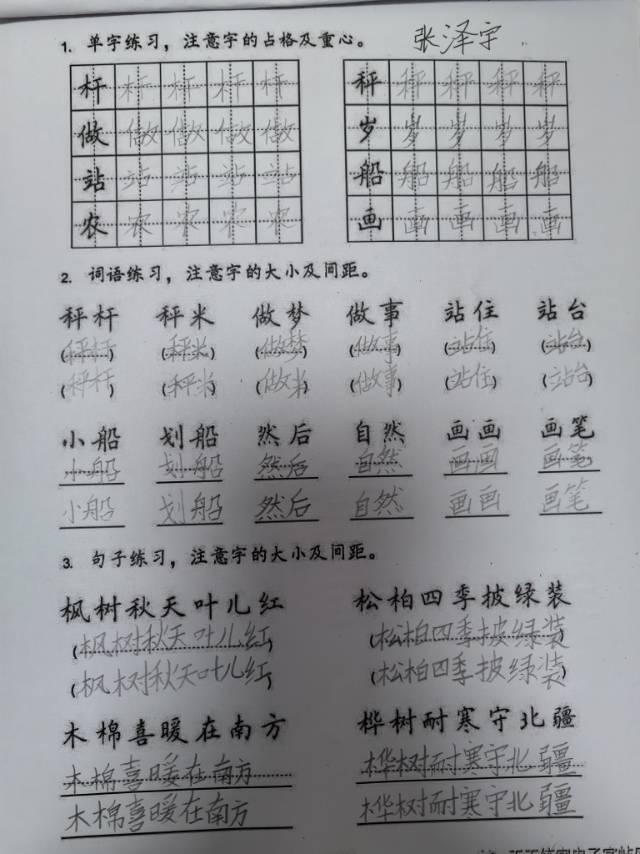 1. 单字练习，注意字的占格及重心。 张泽宇
杆 杆 杆 杆 杆 秤 秤 秤 秤 秤
做 做 做 做 做 岁 岁 岁 岁 岁
站 站 站 站 站 船 船 船 船 船
农 农 农 农 农 画 画 画 画 画
2. 词语练习，注意字的大小及间距。
秤杆 秤米 做梦 做事 站住 站台
(秤杆) (秤米) (做梦) (做事) (站住) (站台)
(秤杆) (秤米) (做米) (做事) (站住) (站台)
小船 划船 然后 自然 画画 画笔
小船 划船 然后 自然 画画 画笔
小船 划船 然后 自然 画画 画笔
3. 句子练习，注意字的大小及间距。
枫树秋天叶儿红 松柏四季披绿装
(枫树秋天叶儿红) (松柏四季披绿装)
(枫树秋天叶儿红) (松柏四季披绿装)
木棉喜暖在南方 桦树耐寒守北疆
木棉喜暖在南方 桦树耐寒守北疆
木棉喜暖在南方 桦树耐寒守北疆